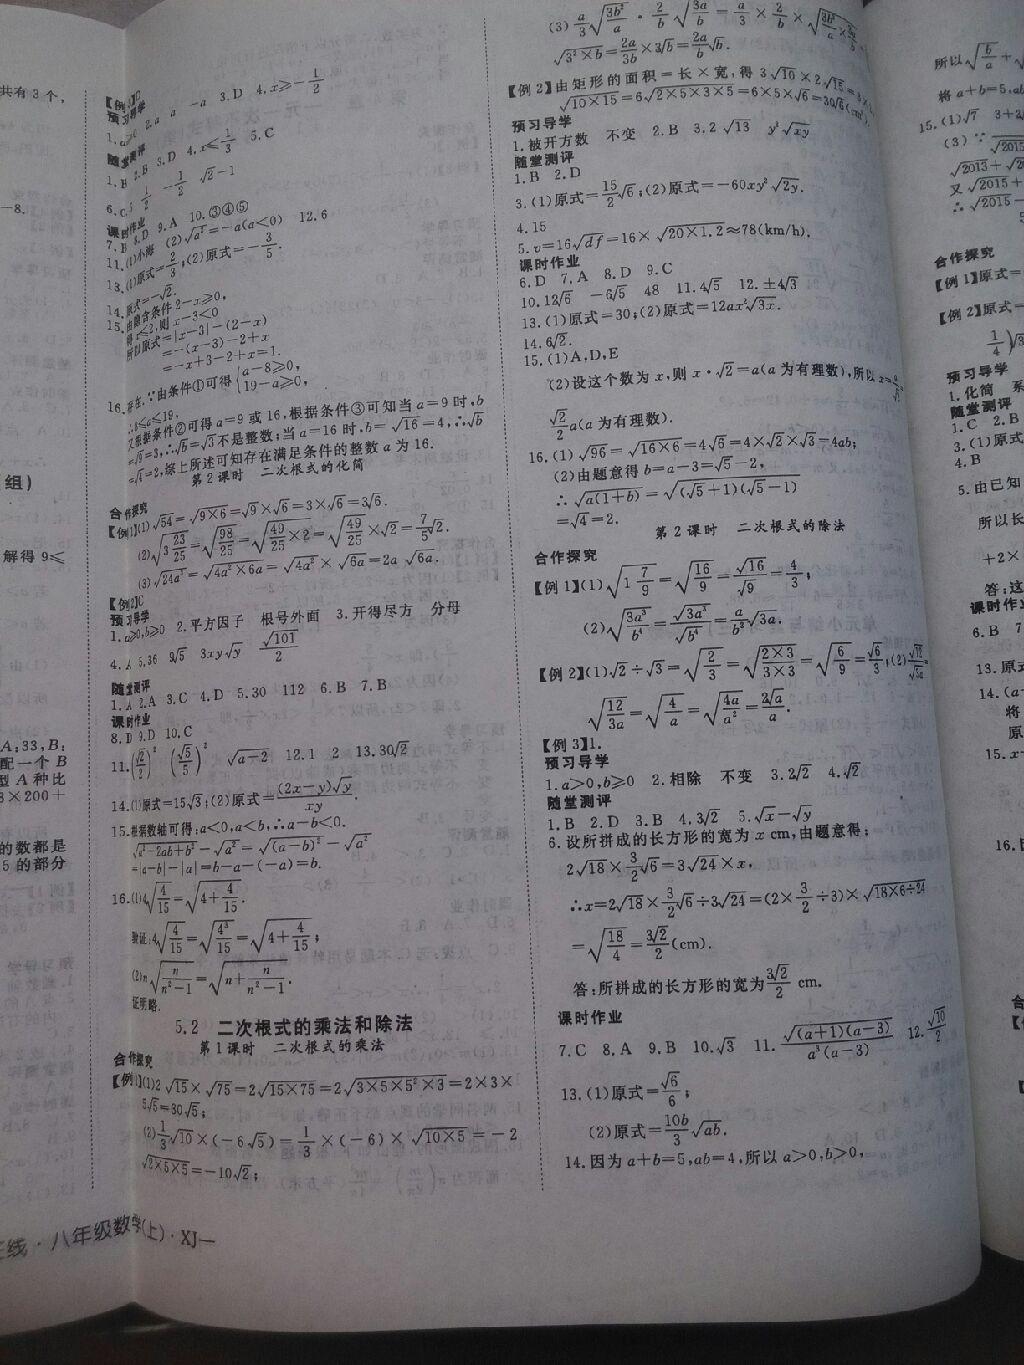 共有3个,
—8.
组)
解得9≤
A;33,B;
配一个B
型A种比
8×200+
的数都是
5的部分
【例3】C
预习导学
1.a≥0 2.a a -a 3.D 4.x≥-1/2
随堂测评
1.B 2.B 3.D 4.x≤1/3 5.C
课时作业
7.B 8.D 9.A 10.③④⑤
11.(1)小海 (2)√a²=-a(a<0) 12.6
13.(1)原式=2/3;(2)原式=-3/5.
14.原式=-√2.
15.由隐含条件2-x≥0,
得x≤2,则x-3<0
所以原式=|x-3|-(2-x)
=-(x-3)-2+x
=-x+3-2+x=1.
16.存在.∵由条件①可得{a-8≥0, 19-a≥0,
∴8≤a≤19.
又根据条件②可得a=9或16.根据条件③可知当a=9时,b
=√9=3,∴√b=√3不是整数;当a=16时,b=√16=4,∴√b
=√4=2,综上所述可知存在满足条件的整数a为16.
第2课时 二次根式的化简
合作探究
【例1】(1)√54=√(9×6)=√9×√6=3×√6=3√6.
(2)√(3 23/25)=√(98/25)=√(49/25×2)=√(49/25)×√2=7/5√2.
(3)√(24a³)=√(4a²×6a)=√(4a²)×√(6a)=2a√(6a).
【例2】C
预习导学
1.a≥0,b≥0 2.平方因子 根号外面 3.开得尽方 分母
4.A 5.36 9√5 3xy√y √101/2
随堂测评
1.A 2.A 3.C 4.D 5.30 112 6.B 7.B
课时作业
8.D 9.D 10.C
11.(√2/2)² (√5/5)² √(a-2) 12.1 2 13.30√2
14.(1)原式=15√3;(2)原式=(2x-y)√y/xy.
15.根据数轴可得:a<0,a<b,∴a-b<0.
√(a²-2ab+b²)-√a²=√((a-b)²)-√a²
=|a-b|-|a|=b-a-(-a)=b.
16.(1)4√(4/15)=√(4+4/15).
验证:4√(4/15)=√(4³/15)=√(4+4/15);
(2)n√(n/(n²-1))=√(n+n/(n²-1)).
证明略.
5.2 二次根式的乘法和除法
第1课时 二次根式的乘法
合作探究
【例1】(1)2√15×√75=2√(15×75)=2√(3×5×5²×3)=2×3×
5√5=30√5;
(2)1/3√10×(-6√5)=1/3×(-6)×√(10×5)=-2
√(2×5×5)=-10√2;
线·八年级数学(上)·XJ—
(3)a/3√(3b²/a)·2/b√(3a/b)=a/3×2/b×
√(3²×b)=2a/3b×3√b=2a/b√b.
【例2】由矩形的面积=长×宽,得3√10×2√15=3×2
√(10×15)=6√(2×5×3×5)=6×5×√6=30√6(cm²).
预习导学
1.被开方数 不变 2.B 3.2√13 y²√xy
随堂测评
1.B 2.D
3.(1)原式=15/2√6;(2)原式=-60xy²√(2y).
4.15
5.v=16√(df)=16×√(20×1.2)≈78(km/h).
课时作业
6.D 7.A 8.D 9.C
10.12√6 -6√5 48 11.4√5 12.±4√3
13.(1)原式=30;(2)原式=12ax²√(3x).
14.6√2.
15.(1)A,D,E
(2)设这个数为x,则x·√2=a(a为有理数),所以x=a/√2=
√2/2a(a为有理数).
16.(1)√96=√(16×6)=4√6=4×√2×√3=4ab;
(2)由题意得b=a-3=√5-2,
∴√(a(1+b))=√((√5+1)(√5-1))
=√4=2.
第2课时 二次根式的除法
合作探究
【例1】(1)√(1 7/9)=√(16/9)=√16/√9=4/3;
(2)√(3a³/b⁴)=√(3a³)/√(b⁴)=a/b²√(3a).
【例2】(1)√2÷√3=√(2/3)=√((2×3)/(3×3))=√(6/9)=√6/3;(2)√12/√(3a)=
√(12/3a)=√(4/a)=√(4a/a²)=2√a/a.
【例3】1.
预习导学
1.a>0,b≥0 2.相除 不变 3.2√2 4.√2
随堂测评
1.B 2.D 3.B 4.3√2 5.√x-√y
6.设所拼成的长方形的宽为x cm,由题意得;
2√18×3/2√6=3√24×x,
∴x=2√18×3/2√6÷3√24=(2×3/2÷3)×√(18×6÷24)
=√(18/4)=3√2/2(cm).
答:所拼成的长方形的宽为3√2/2 cm.
课时作业
7.C 8.A 9.B 10.√3 11.√((a+1)(a-3))/a³(a-3) 12.√10/2
13.(1)原式=√6/6;
(2)原式=10b/3√ab.
14.因为a+b=5,ab=4,所以a>0,b>0,
所以√(b/a)+
将a+b=5,ab
15.(1)√7 3+2
(3)∵
又√2015+
∴√2015-
合作探究
【例1】原式=
【例2】原式=
预习导学
1.化简
随堂测评
1.C 2.B
3.(1)原式
4.B
5.由已知
所以长
+2×
答:这
课时作业
6.B 7
13.原式
14.(a-
将
原
15.x=
16.